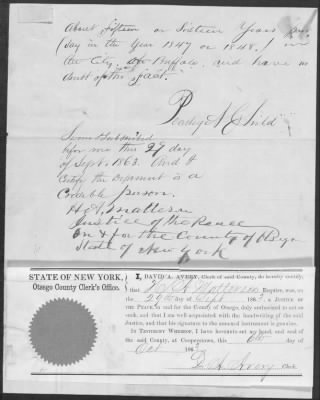 About Fifteen or Sixteen Years
(Say in the Year 1847 or 1848.) in
the City of Buffalo, and have no
doubt of this fact.
Child
Sworn & Subscribed
before me this 29 day
of Sept. 1863. And I
Certify the deponent is a
Credible person.
H. A. Matteson
Justice of the Peace
in & for the County of Otsego
State of New York
STATE OF NEW YORK,
Otsego County Clerk's Office.
I, DAVID A. AVERY, Clerk of said County, do hereby certify,
that H A Matteson Esquire, was on
the 29th day of Sept 1863, a JUSTICE OF
THE PEACE in and for the County of Otsego duly authorized to act as
such, and that I am well acquainted with the handwriting of the said
Justice, and that his signature to the annexed instrument is genuine.
IN TESTIMONY WHEREOF, I have hereunto set my hand, and seal of
the said county, at Cooperstown, this 6th day
Oct 1863
D. A. Avery Clerk